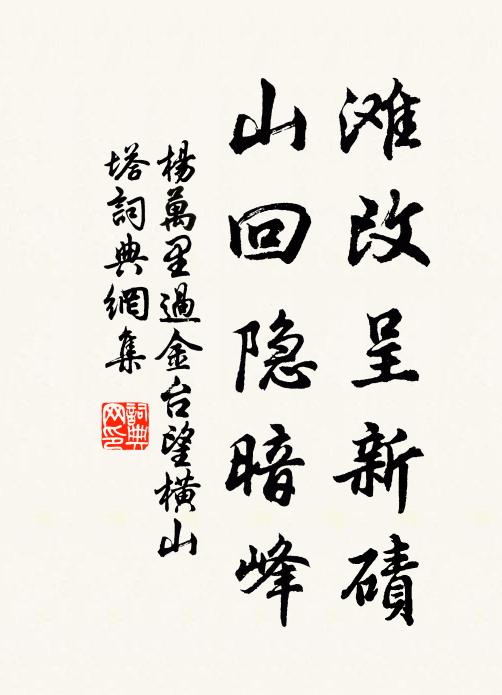 滩改呈新磧
山回隐暗峰
楊萬里過金台望橫山
塔詞典網集
詞典网印